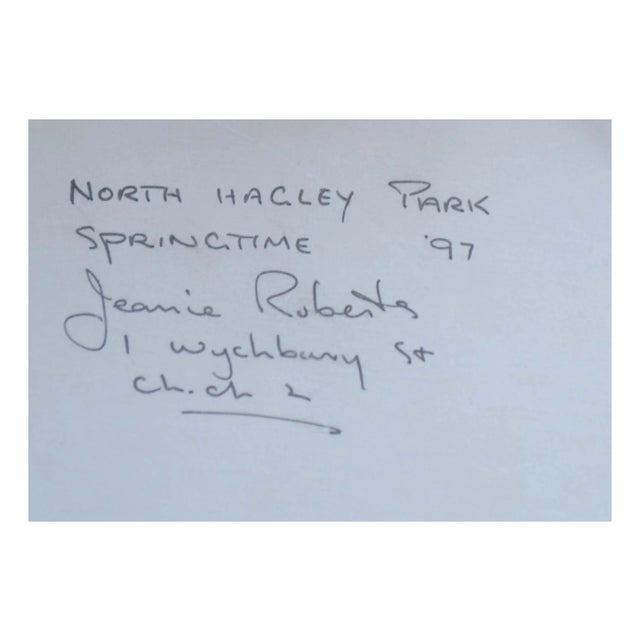 NORTH HAGLEY PARK
SPRINGTIME '97
Jeanie Roberts
1 Wychbury St
Ch.ch 2